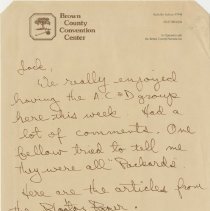 Brown
County
Convention
Center
Jack,
We really enjoyed
having the A.C.&D group
here this week. Had a
lot of comments. One
fellow tried to tell me
they were all "Packards"
Here are the articles from
the